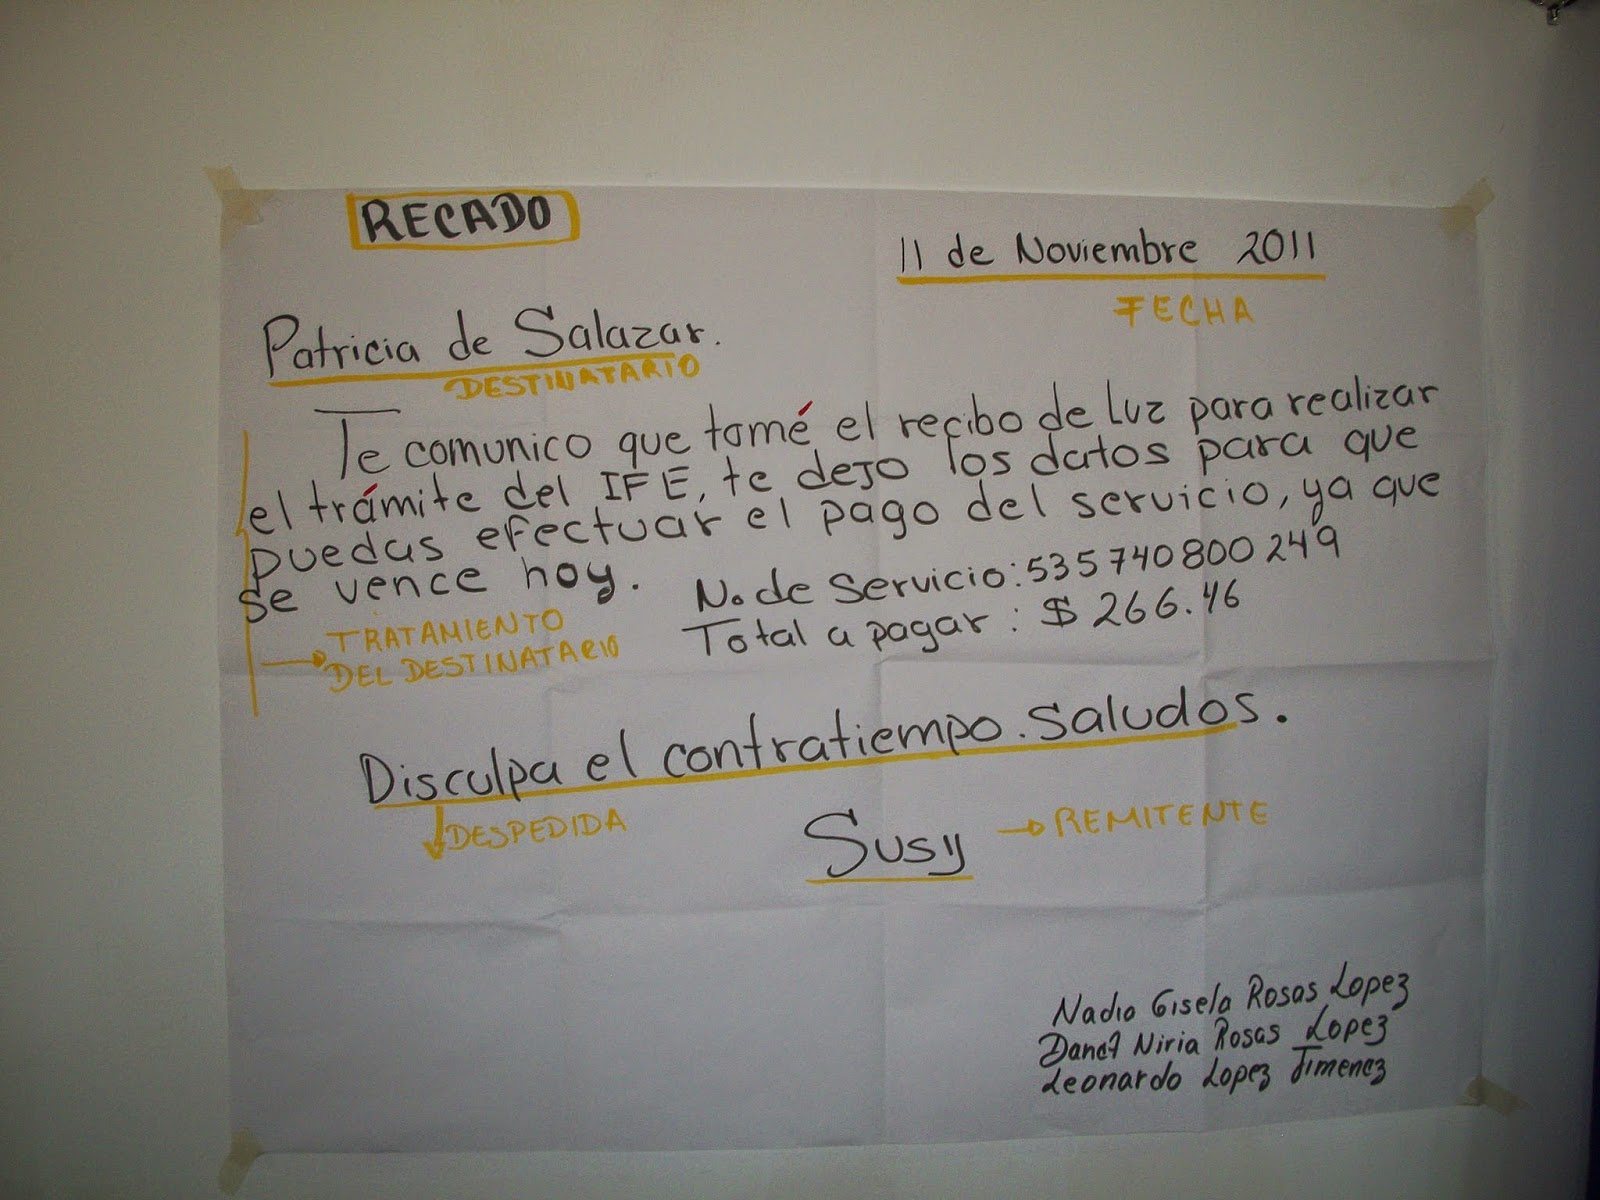 RECADO
11 de Noviembre 2011
FECHA
Patricia de Salazar.
DESTINATARIO
Te comunico que tomé el recibo de Luz para realizar
el trámite del IFE, te dejo los datos para que
puedas efectuar el pago del servicio, ya que
se vence hoy.
No. de Servicio: 535740800249
Total a pagar: $ 266.46
TRATAMIENTO
DEL DESTINATARIO
Disculpa el contratiempo. Saludos.
DESPEDIDA
Susy
REMITENTE
Gisela Rosas Lopez
Niria Rosas Lopez
Leonardo Lopez Jimenez